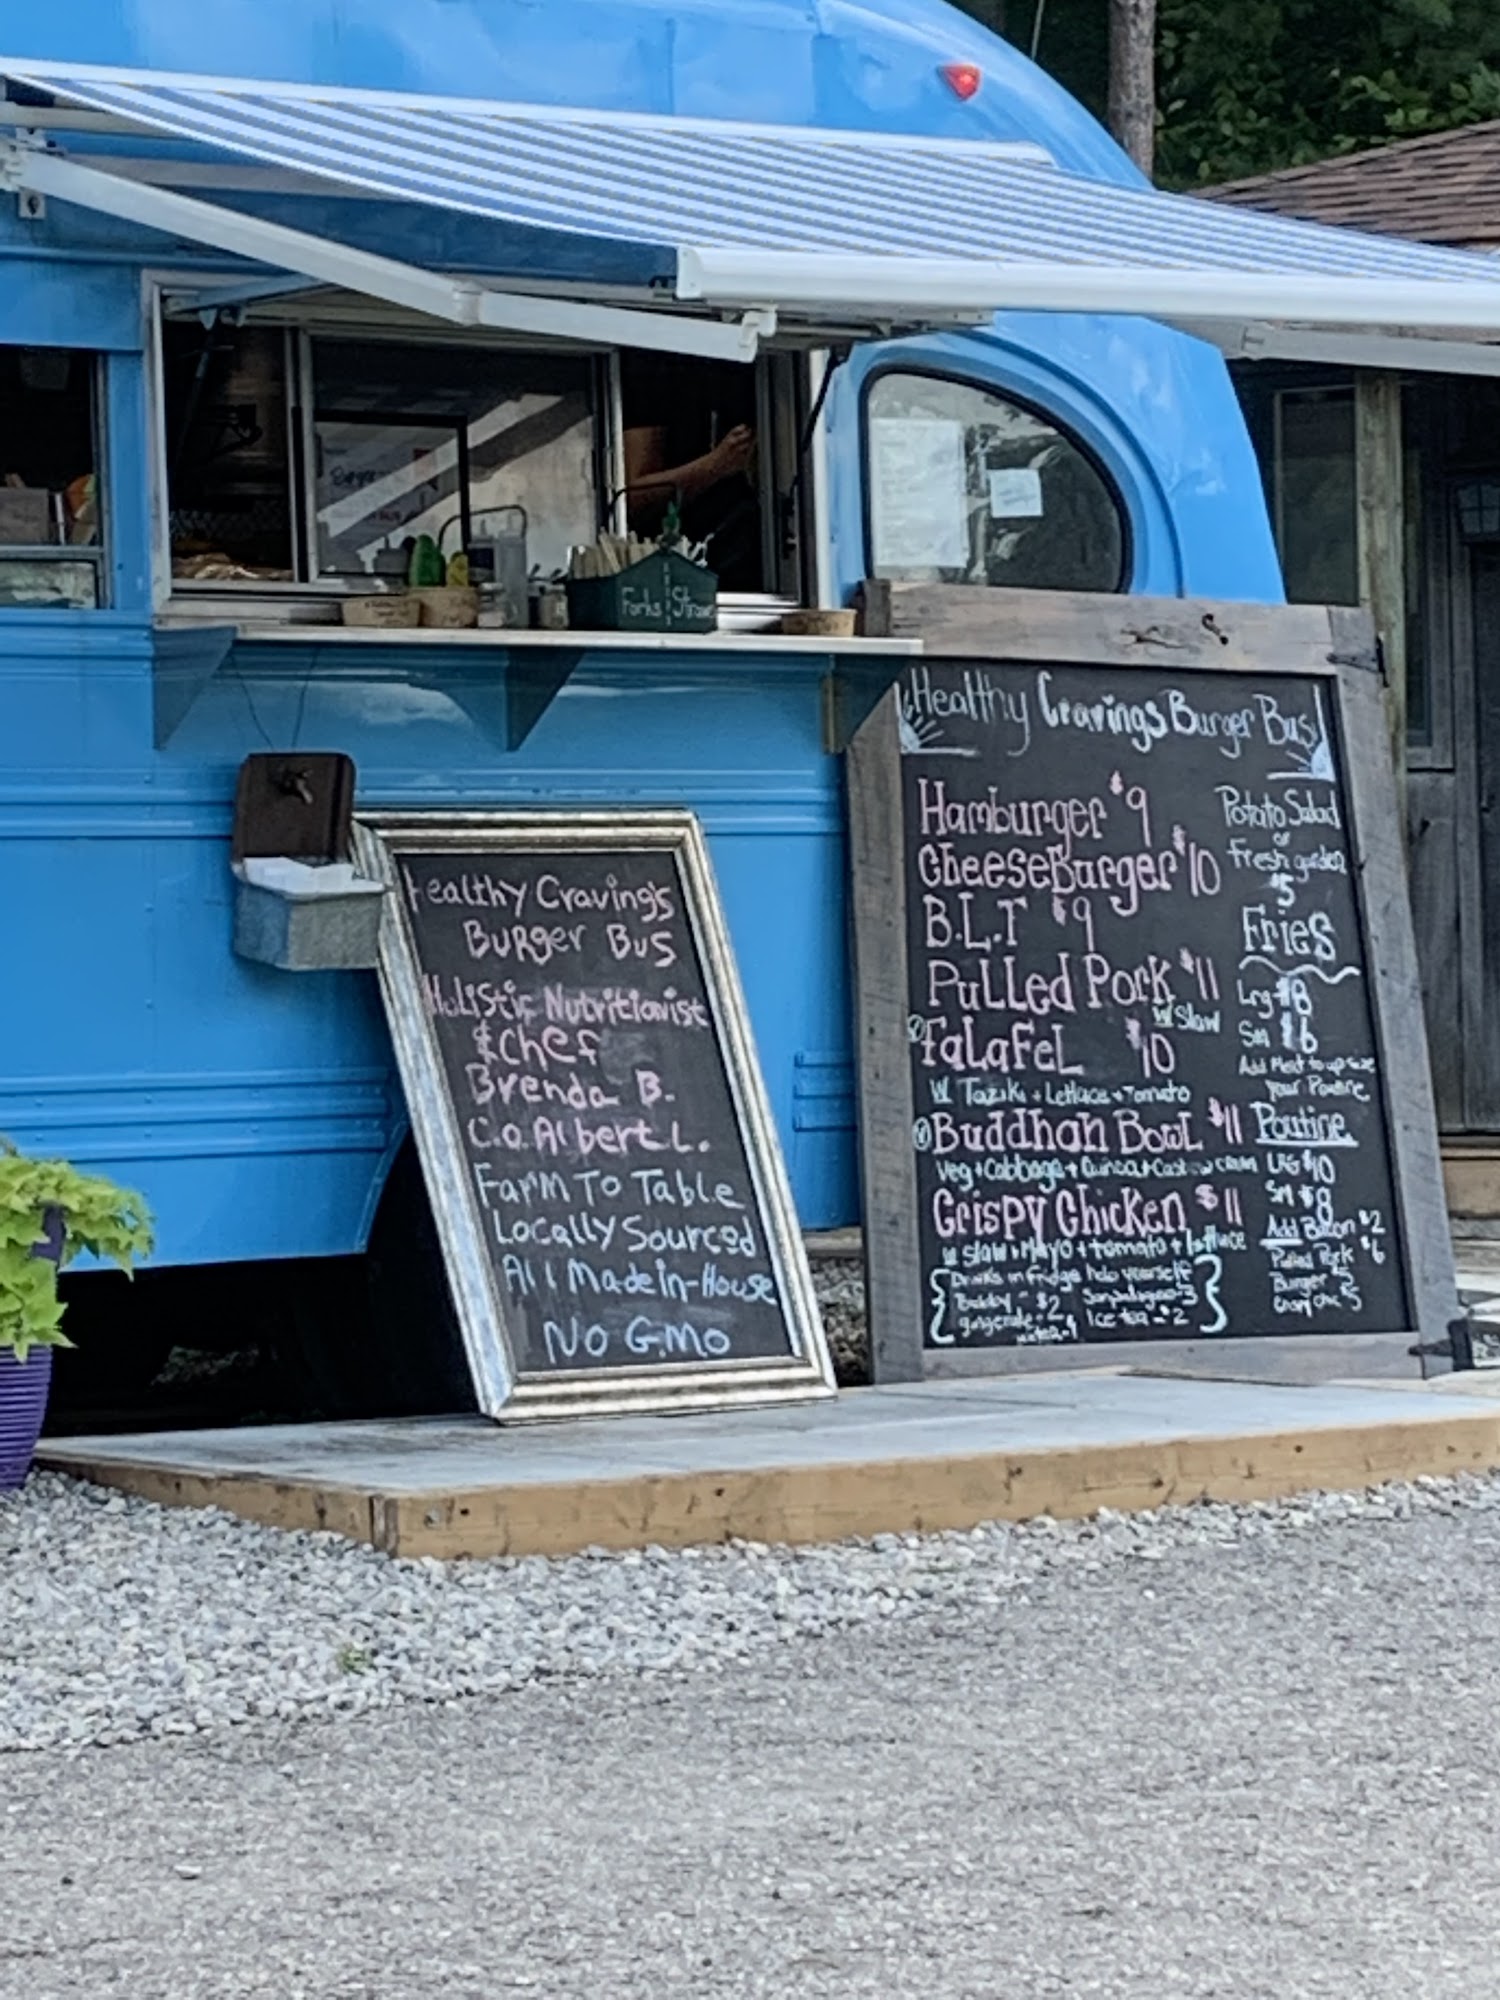 Forks Straws
Healthy Cravings
Burger Bus
Holistic Nutritionist
& Chef
Brenda B.
C.O. Albert L.
Farm To Table
Locally Sourced
All Made in-House
No G.MO
Healthy Cravings Burger Bus!
Hamburger $9
CheeseBurger $10
B.L.T $9
Pulled Pork $11
W Slaw
Falafel $10
W Taziki + Lettuce + Tomato
Buddhan Bowl $11
Veg + Cabbage + Quinoa +
Crispy Chicken $11
w slaw + Mayo + tomato + lettuce
Drinks in fridge help yourself
$2
gingerale - 2 Ice tea - $2
water - 1
Potato Salad
or
Fresh garden
$5
Fries
Lrg $8
Sm $6
Add Meat to
your Poutine
Poutine
LRG $10
Sm $8
Add Bacon $2
Pulled Pork $6
Burger $5